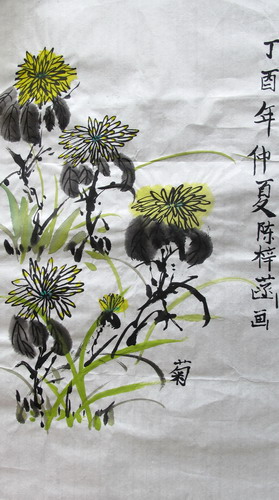 丁酉年仲夏陈梓菡画
菊